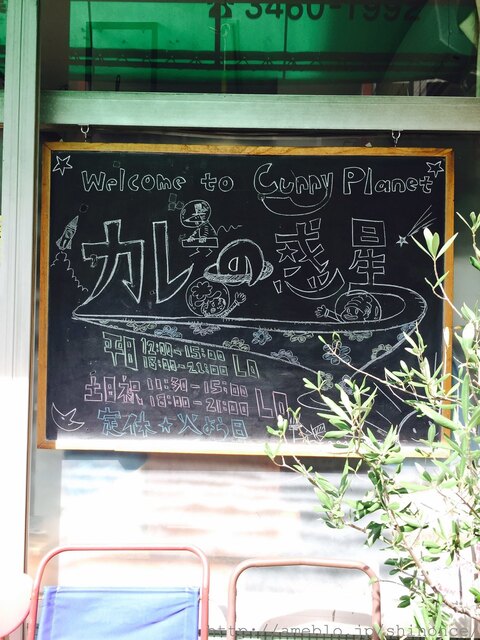 ☎ 3460-1992
Welcome to Curry Planet
カレーの惑星
平日 12:00-15:00
18:00-21:00 LO
土日祝 11:30-15:00
18:00-21:00 LO
定休☆火よう日
http://ameblo.jp/shironeet/